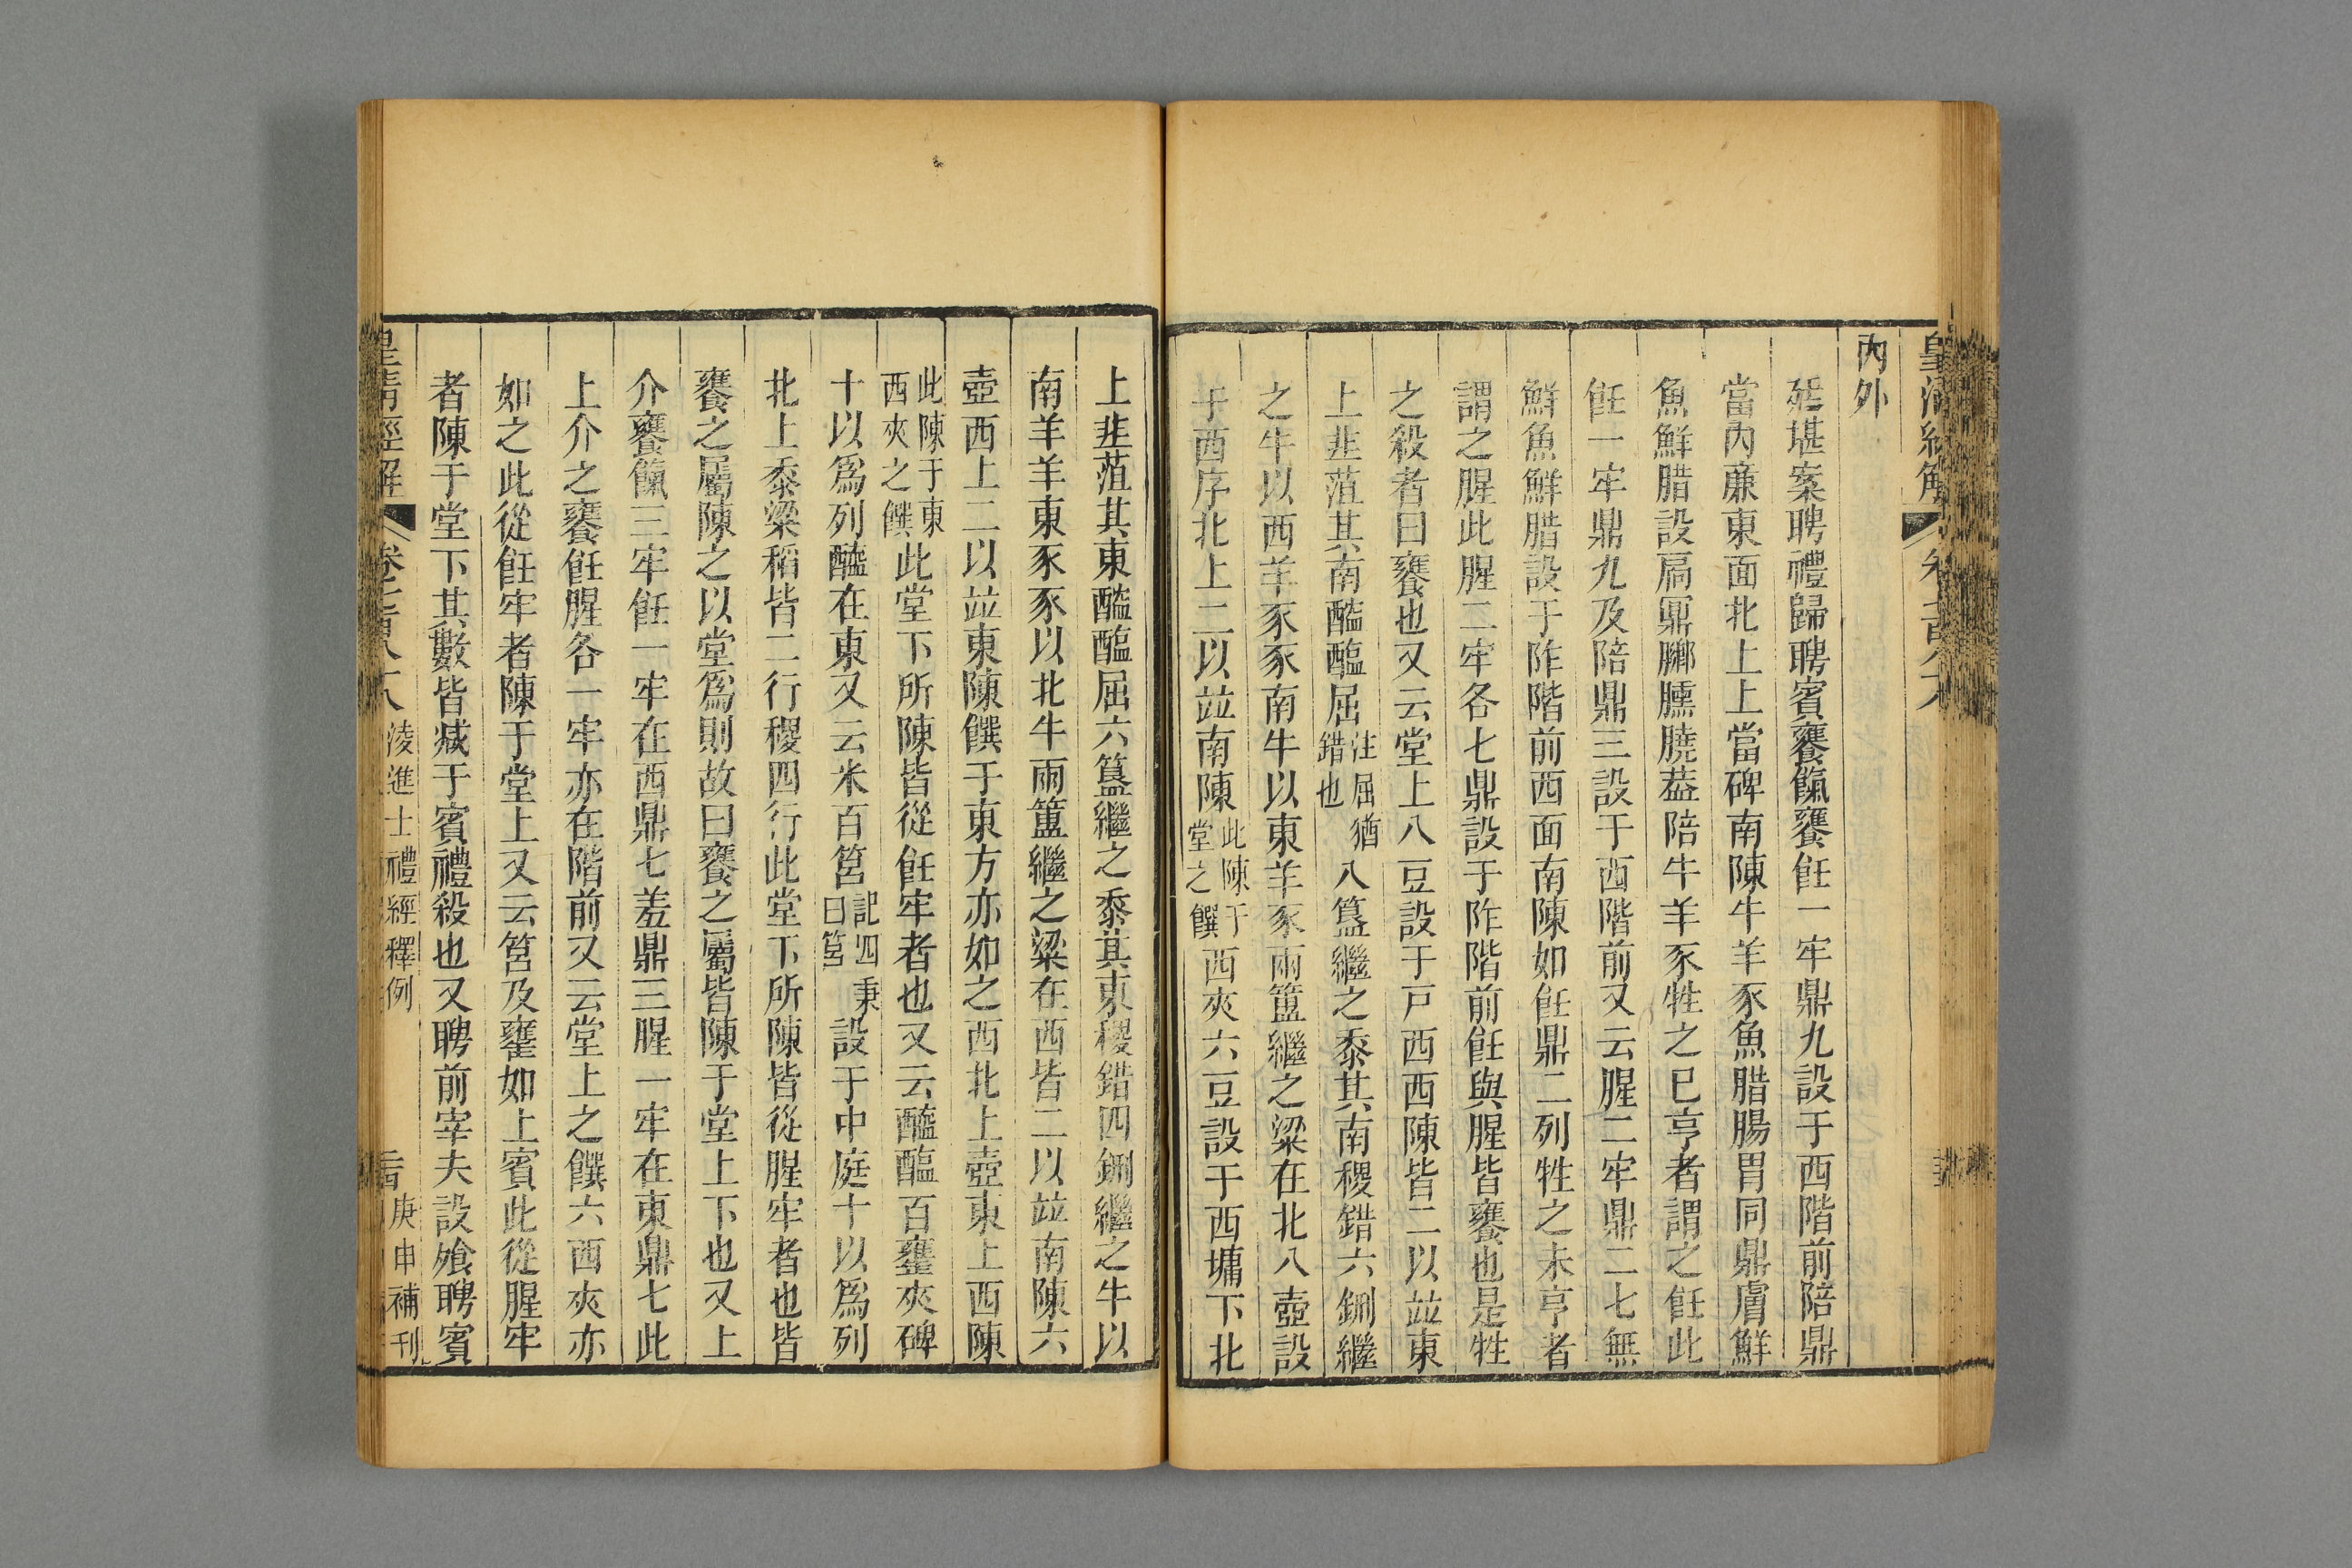 內外
廷堪案聘禮歸聘賓饔餼饔飪一牢鼎九設于西階前陪鼎
當內廉東面北上上當碑南陳牛羊豕魚腊腸胃同鼎膚鮮
魚鮮腊設扃鼏膷臐膮葢陪牛羊豕牲之已亨者謂之飪此
飪一牢鼎九及陪鼎三設于西階前又云腥二牢鼎二七無
鮮魚鮮腊設于阼階前西面南陳如飪鼎二列牲之未亨者
謂之腥此腥二牢各七鼎設于阼階前飪與腥皆饔也是牲
之殺者曰饔也又云堂上八豆設于戸西西陳皆二以竝東
上韭菹其南醓醢屈注屈猶錯也八簋繼之黍其南稷錯六鉶繼
之牛以西羊豕豕南牛以東羊豕兩簠繼之粱在北八壺設
于西序北上二以竝南陳此陳于堂之饌西夾六豆設于西墉下北
上韭菹其東醓醢屈六簋繼之黍其東稷錯四鉶繼之牛以
南羊羊東豕豕以北牛兩簠繼之粱在西皆二以竝南陳六
壺西上二以竝東陳饌于東方亦如之西北上壺東上西陳
此陳于東西夾之饌此堂下所陳皆從飪牢者也又云醯醢百罋夾碑
十以爲列醯在東又云米百筥記四秉曰筥設于中庭十以爲列
北上黍粱稻皆二行稷四行此堂下所陳皆從腥牢者也皆
饔之屬陳之以堂爲則故曰饔之屬皆陳于堂上下也又上
介饔餼三牢飪一牢在西鼎七羞鼎三腥一牢在東鼎七此
上介之饔飪腥各一牢亦在階前又云堂上之饌六西夾亦
如之此從飪牢者陳于堂上又云筥及罋如上賓此從腥牢
者陳于堂下其數皆減于賓禮殺也又聘前宰夫設飧聘賓
皇清經解
卷七百八十八
淩進士禮經釋例
庚申補刊